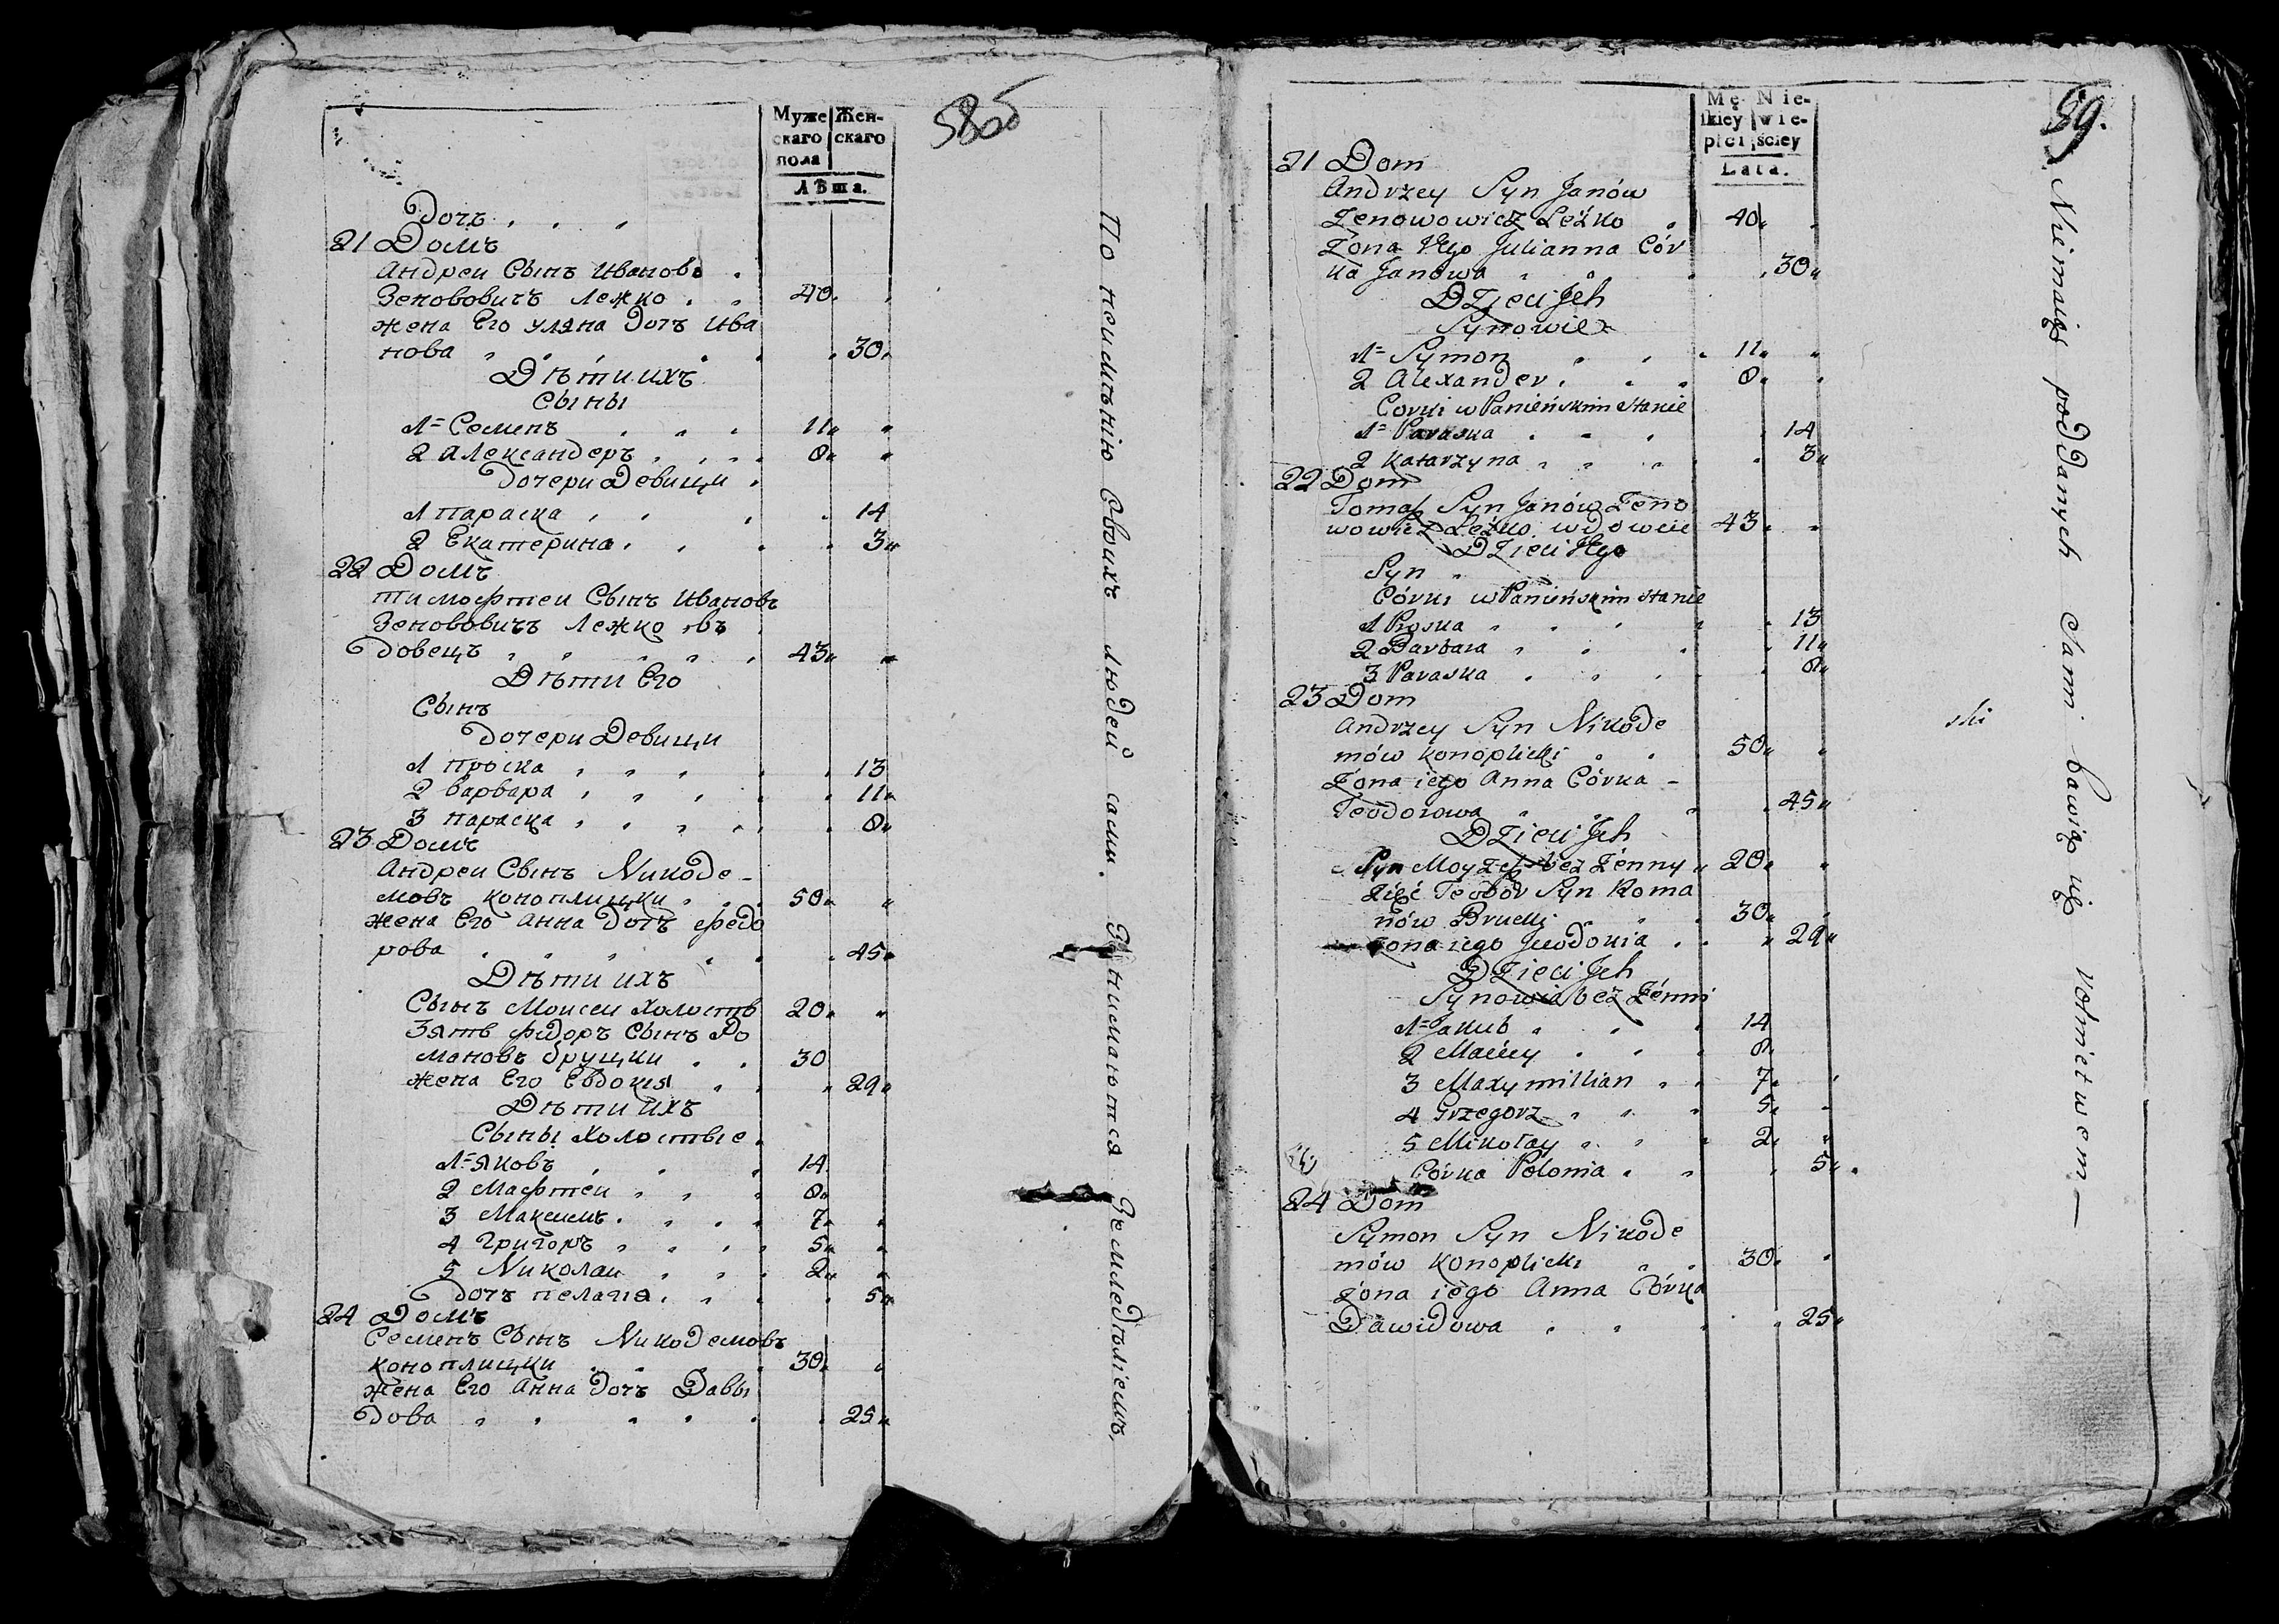 58об
Муже
скаго
пола
Жен-
скаго
Лѣта.
Дочь
21 Домъ
Андреи Сынъ Ивановъ
Зенововичъ Лежко 40
жена Его уляна Дочъ Ива
нова 30
Дѣти ихъ
Сыны
1 Семенъ 11
2 Александеръ 8
Дочери Девицы
1 Параска 14
2 Екатерина 3
22 Домъ
Тимофтеи Сынъ Ивановъ
Зенововичъ Лежко въ
довецъ 43
Дѣти Его
Сынъ
Дочери Девицы
1 Проска 13
2 Варвара 11
3 Параска 8
23 Домъ
Андреи Сынъ Никоде-
мовъ Коноплицки 50
жена Его Анна Дочъ Федо
рова 45
Дѣти ихъ
Сынъ Моисеи Холостъ 20
Зять Фидоръ Сынъ Ро
мановъ Бруцки 30
жена Его Евдокия 29
Дѣти ихъ
Сыны Холостые
1 Яковъ 14
2 Мафтеи 8
3 Максимъ 7
4 Григоръ 5
5 Николаи 2
Дочъ пелагия 5
24 Домъ
Семенъ Сынъ Никодемовъ
Коноплицки 30
жена Его Анна Дочъ Давы
дова 25
По неимѣнію Своихъ людей сами. Занимаются Земледѣліемъ,
59.
Mę-
skiey
płci
Nie-
wie-
ściey
Lata.
21 Dom
Andrzey Syn Janów
Zenowowicz Leżko 40
Żona Jego Julianna Cór
ka Janowa 30
Dzieci Jch
Synowie
1 Symon 11
2 Alexander 8
Corki w Panieńskim stanie
1 Paraska 14
2 Katarzyna 3
22 Dom
Tomasz Syn Janów Zeno
wowicz Leżko wdowiec 43
Dzieci Jego
Syn
Córki w Panieńskim stanie
1 Proska 13
2 Barbara 11
3 Paraska 8
23 Dom
Andrzey Syn Nikode
mów Konoplicki 50
Żona iego Anna Córka -
Teodorowa 45
Dzieci Jch
Syn Moyzesz bez Żenny 20
Zięć Teodor Syn Roma
nów Brucki 30
Żona iego Jewdokia 29
Dzieci Jch
Synowie bez Żenni
1 Jakub 14
2 Maciey 8
3 Maxymillian 7
4 Grzegorz 5
5 Mikołay 2
Córka Polonia 5
24 Dom
Symon Syn Nikode
mów Konoplicki 30
Żona iego Anna Córka
Dawidowa 25
Nie maiąc poddanych Sami bawią się rolnictwem
ski